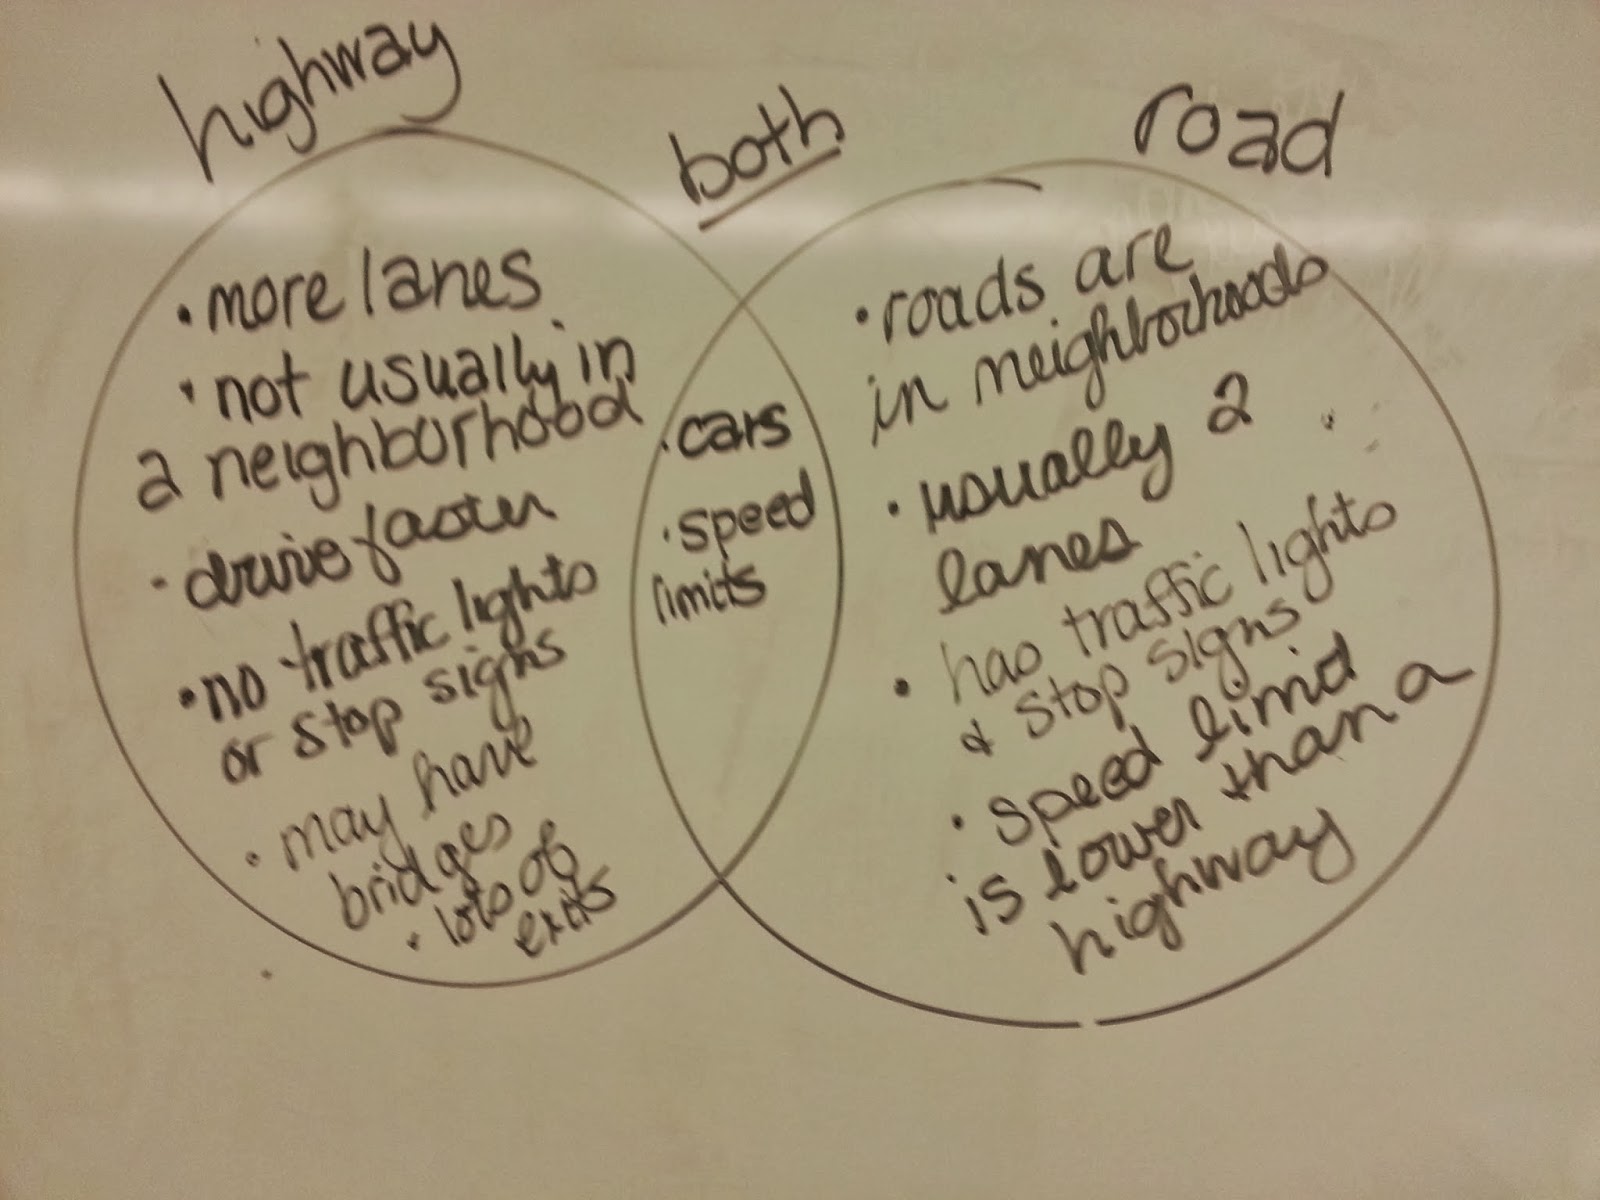 highway
both
road
• more lanes
• not usually in
a neighborhood
• drive faster
• no traffic lights
or stop signs
• may have
bridges
• lots of
exits
• cars
• speed
limits
• roads are
in neighborhoods
• usually 2
lanes
• has traffic lights
& stop signs
• speed limit
is lower than a
highway